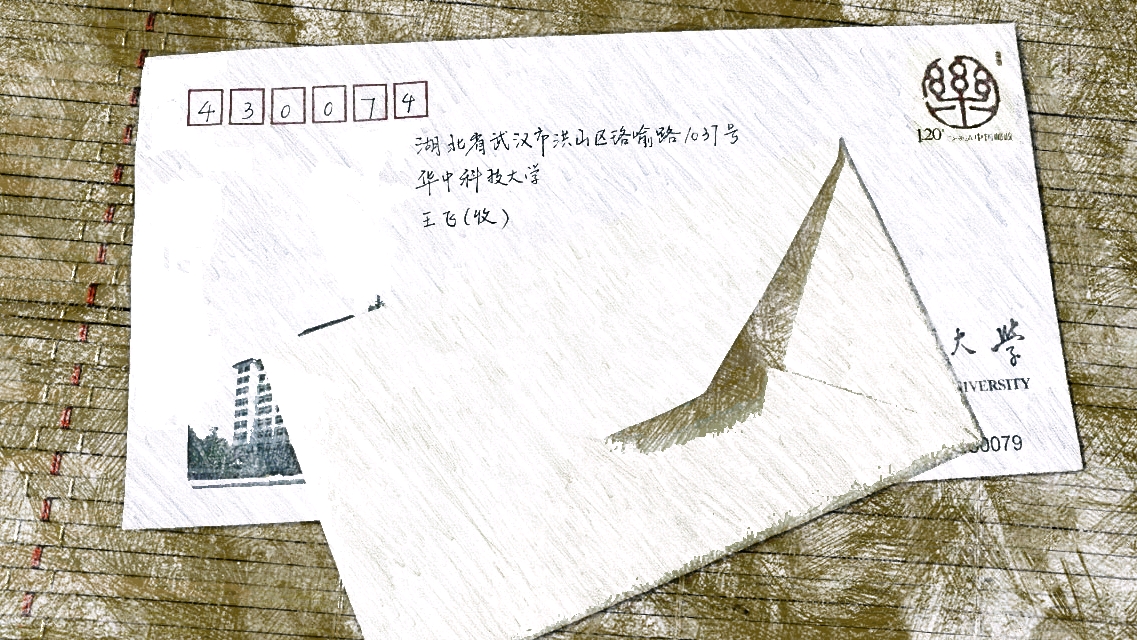 430074
湖北省武汉市洪山区珞喻路1037号
华中科技大学
王飞(收)
樂
120
大学
NIVERSITY
0079